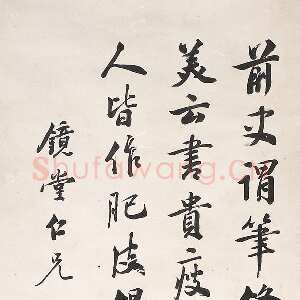 前史謂筆
美云書貴瘦
人皆作肥皮
鏡堂仁兄
Shufawang.cn